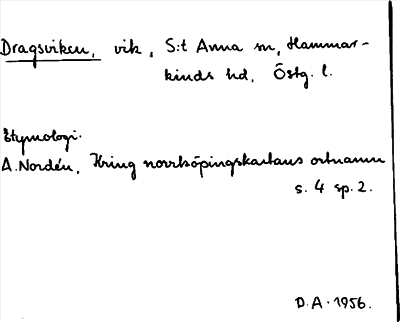 Dragsviken, vik, S:t Anna sn, Hammar-
kinds hd, Östg. l.
Etymologi.
A. Nordén, Kring norrköpingskartans ortnamn
s. 4 sp. 2.
D.A. 1956.